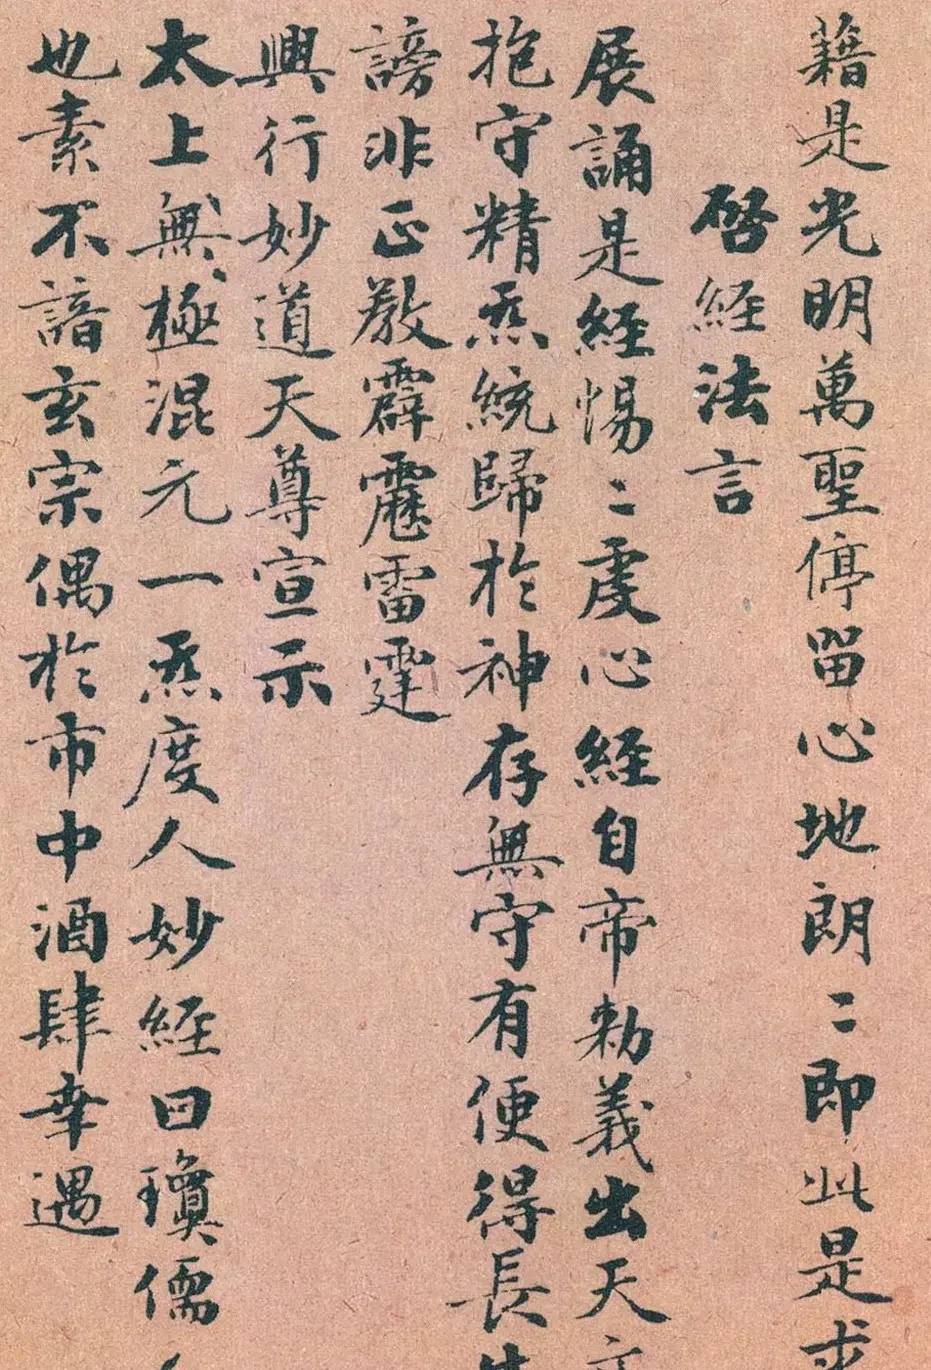 籍是光明萬聖停留心地朗〻即此是求
啓経法言
展誦是経惕〻虔心経自帝勅義出天
抱守精炁統歸於神存無守有便得長
謗非正教霹靂雷霆
興行妙道天尊宣示
太上無極混元一炁度人妙経曰瓊儒
也素不諳玄宗偶於市中酒肆幸遇